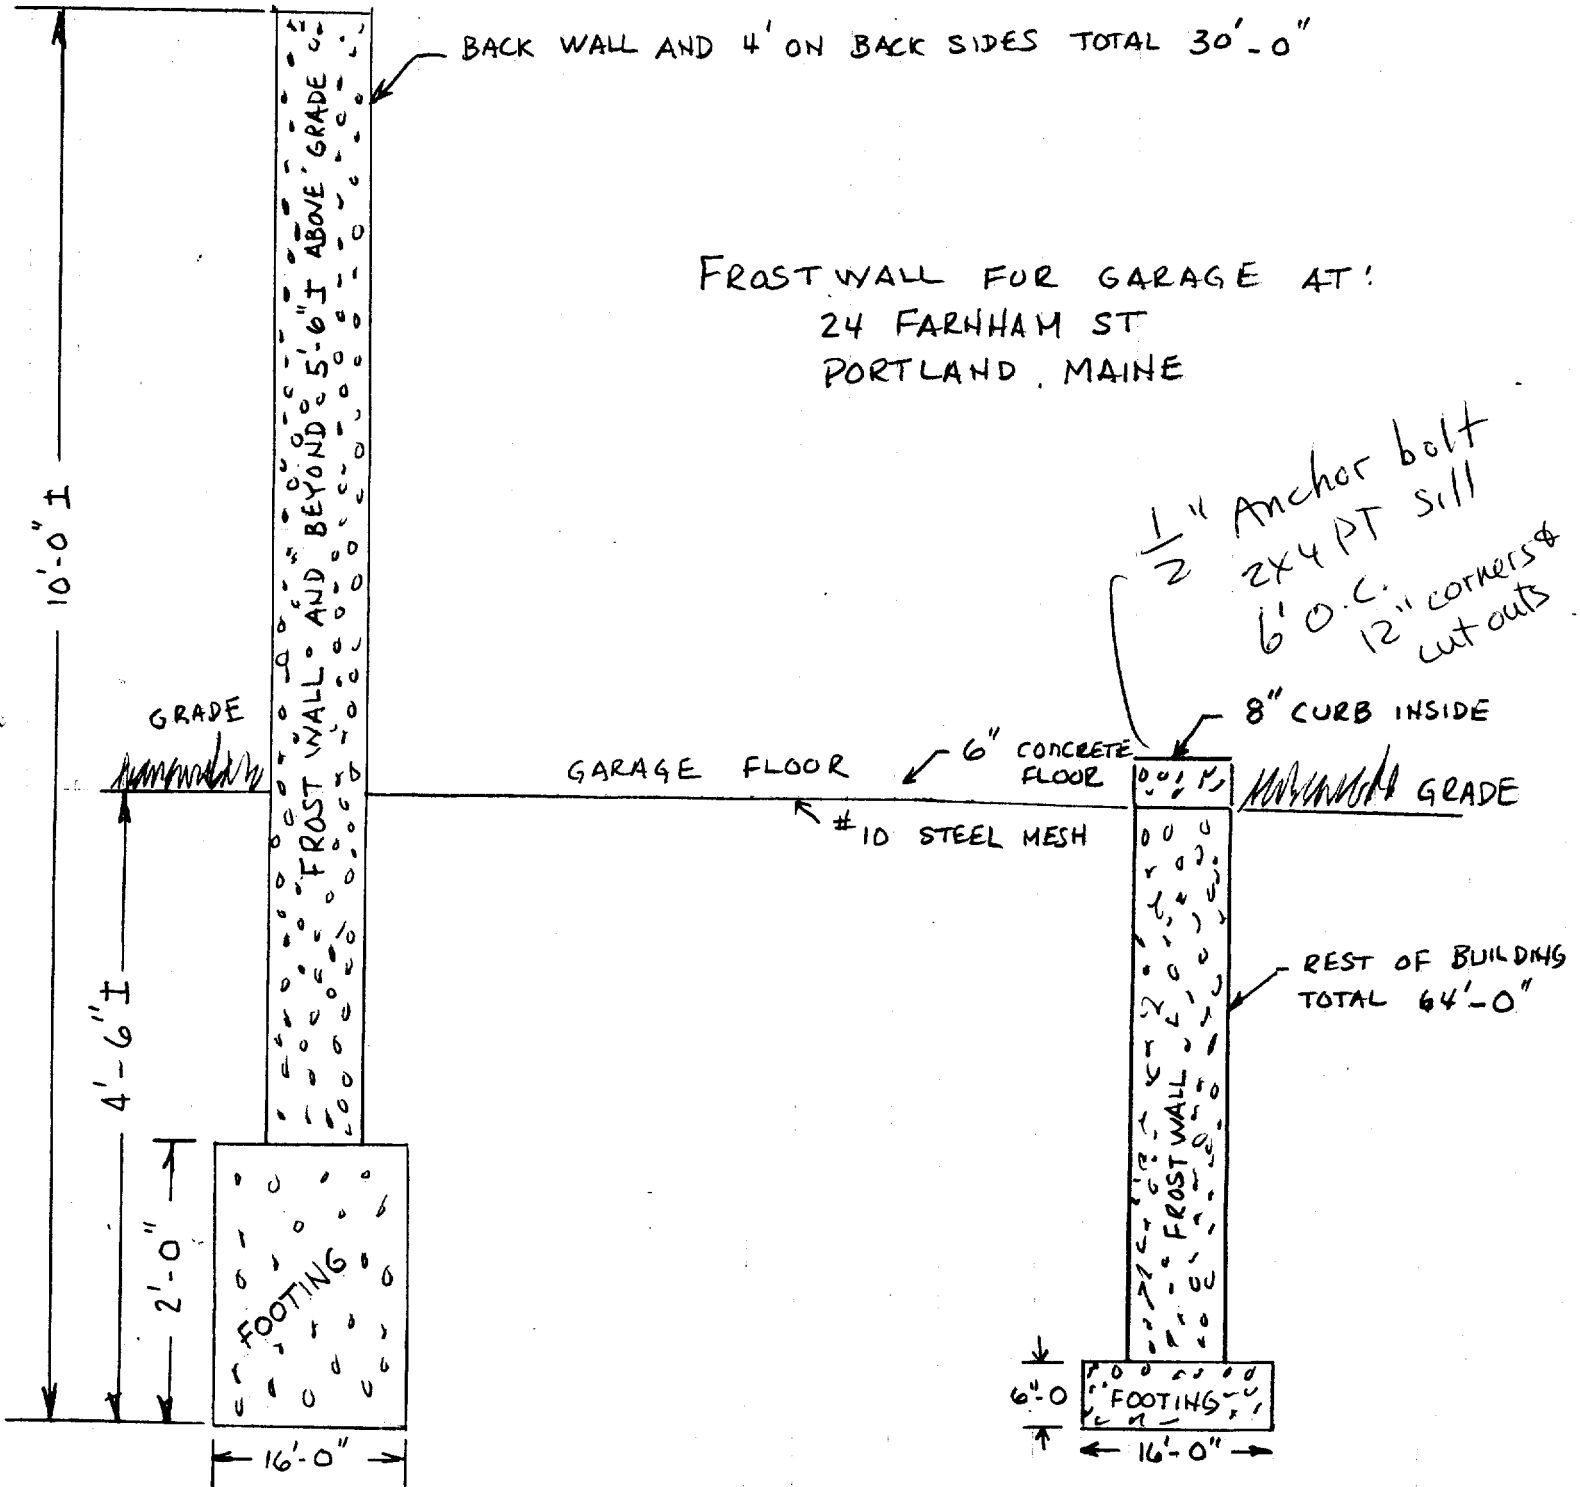 BACK WALL AND 4' ON BACK SIDES TOTAL 30'-0"
FROST WALL AND BEYOND 5'-6"± ABOVE GRADE
FROST WALL FOR GARAGE AT:
24 FARNHAM ST
PORTLAND, MAINE
10'-0"±
1/2" Anchor bolt
2x4 PT Sill
6' O.C.
12" corners &
cut outs
GRADE
8" CURB INSIDE
GARAGE FLOOR
6" CONCRETE
FLOOR
GRADE
#10 STEEL MESH
REST OF BUILDING
TOTAL 64'-0"
4'-6"±
FROST WALL
2'-0"
FOOTING
6"-0
FOOTING
16'-0"
16'-0"